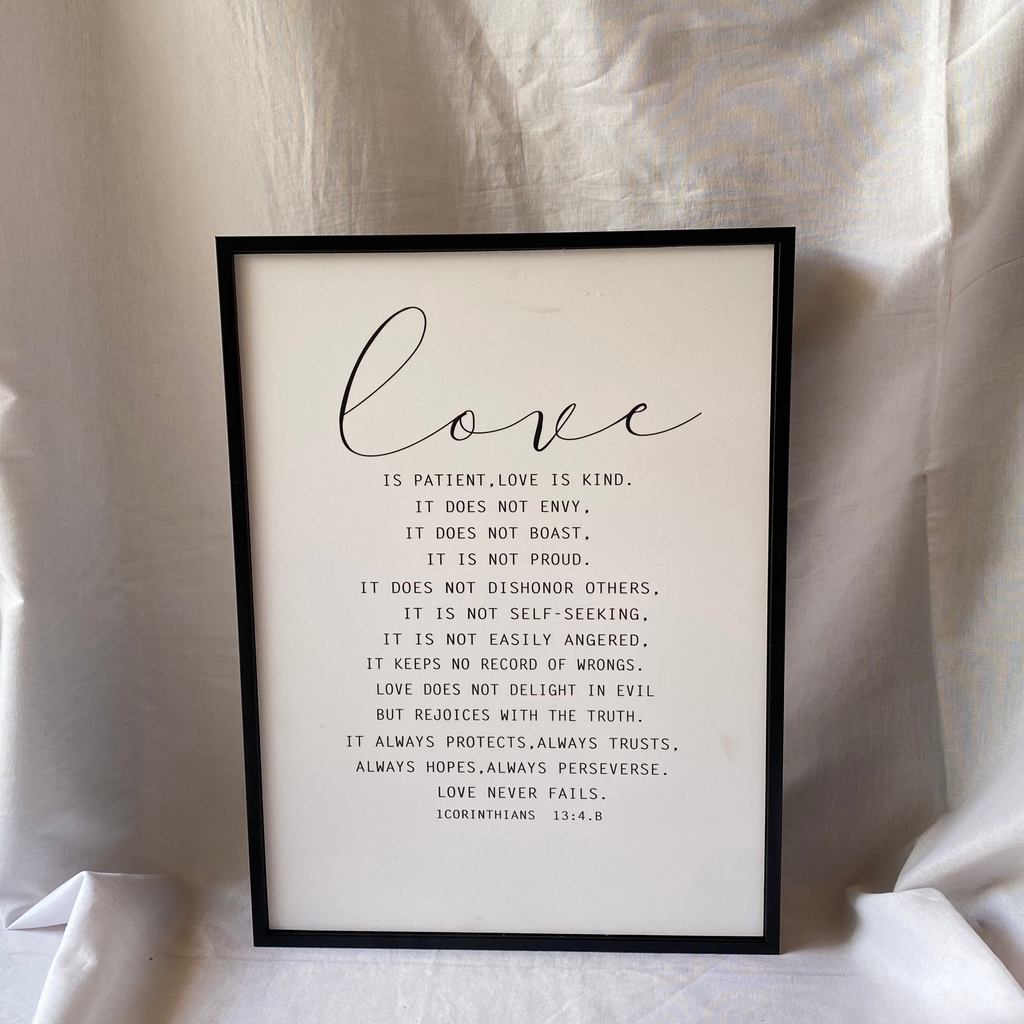 love
IS PATIENT,LOVE IS KIND.
IT DOES NOT ENVY,
IT DOES NOT BOAST,
IT IS NOT PROUD.
IT DOES NOT DISHONOR OTHERS,
IT IS NOT SELF-SEEKING,
IT IS NOT EASILY ANGERED,
IT KEEPS NO RECORD OF WRONGS.
LOVE DOES NOT DELIGHT IN EVIL
BUT REJOICES WITH THE TRUTH.
IT ALWAYS PROTECTS,ALWAYS TRUSTS,
ALWAYS HOPES,ALWAYS PERSEVERSE.
LOVE NEVER FAILS.
1CORINTHIANS 13:4.B